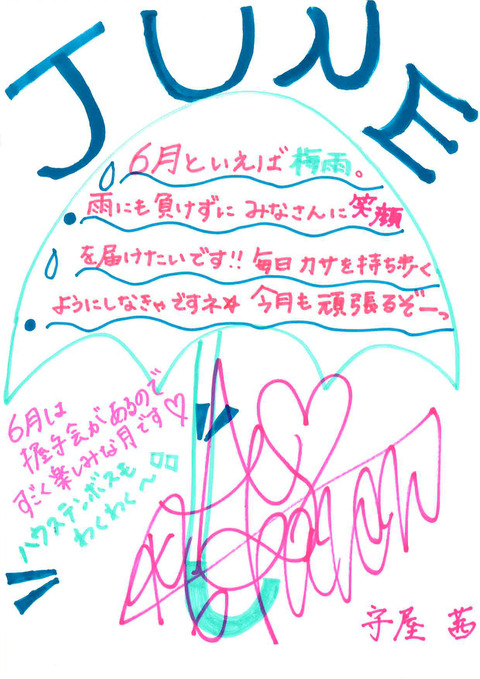 JUNE
6月といえば梅雨。
雨にも負けずに みなさんに笑顔
を届けたいです!! 毎日カサを持ち歩く
ようにしなきゃですネ☆ 今月も頑張るぞーっ
6月は
握手会があるので
すごく楽しみな月です♡
ハウステンボスも
わくわく〜
守屋 茜